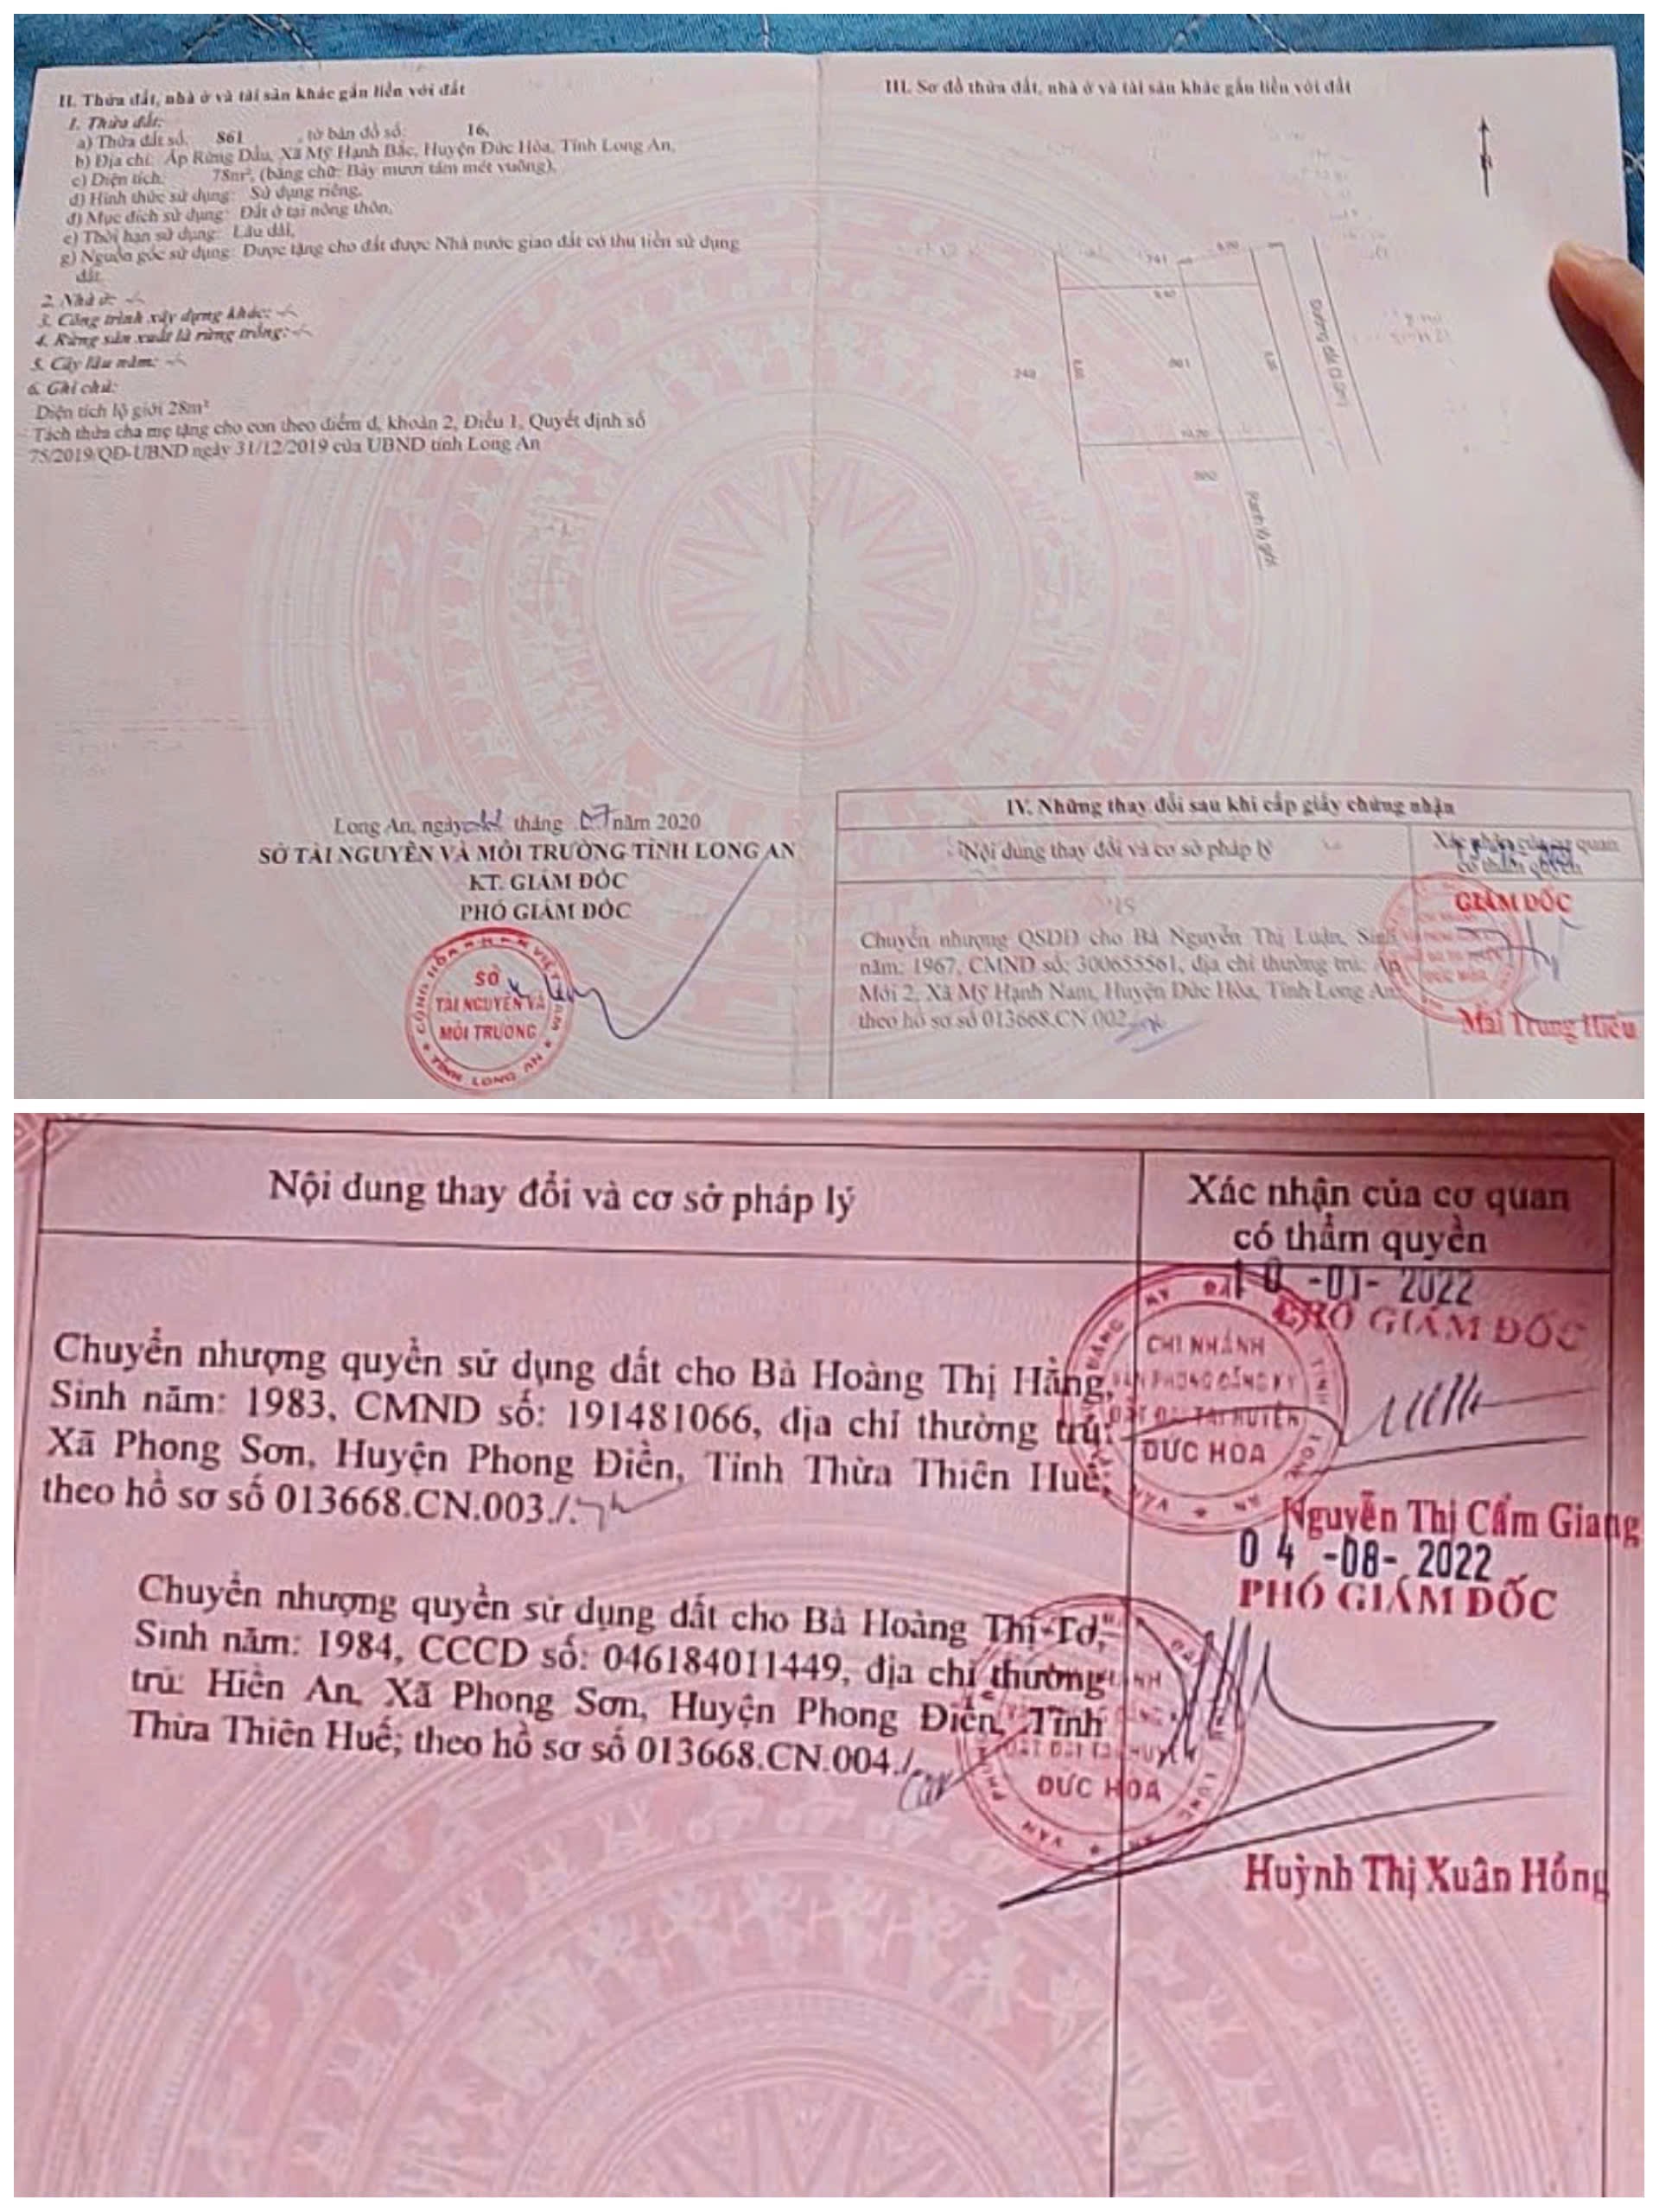 II. Thửa đất, nhà ở và tài sản khác gắn liền với đất
1. Thửa đất:
a) Thửa đất số: 861 , tờ bản đồ số: 16,
b) Địa chỉ: Ấp Rừng Dầu, Xã Mỹ Hạnh Bắc, Huyện Đức Hòa, Tỉnh Long An,
c) Diện tích: 78m², (bằng chữ: Bảy mươi tám mét vuông),
d) Hình thức sử dụng: Sử dụng riêng,
đ) Mục đích sử dụng: Đất ở tại nông thôn,
e) Thời hạn sử dụng: Lâu dài,
g) Nguồn gốc sử dụng: Được tặng cho đất được Nhà nước giao đất có thu tiền sử dụng
đất.
2. Nhà ở: -/-
3. Công trình xây dựng khác: -/-
4. Rừng sản xuất là rừng trồng: -/-
5. Cây lâu năm: -/-
6. Ghi chú:
Diện tích lộ giới 28m²
Tách thửa cha mẹ tặng cho con theo điểm d, khoản 2, Điều 1, Quyết định số
75/2019/QĐ-UBND ngày 31/12/2019 của UBND tỉnh Long An
Long An, ngày tháng 07 năm 2020
SỞ TÀI NGUYÊN VÀ MÔI TRƯỜNG TỈNH LONG AN
KT. GIÁM ĐỐC
PHÓ GIÁM ĐỐC
CỘNG HÒA VIỆT NAM
SỞ
TÀI NGUYÊN VÀ
MÔI TRƯỜNG
TỈNH LONG AN
III. Sơ đồ thửa đất, nhà ở và tài sản khác gắn liền với đất
741
248
861
Đường
862
Ranh lộ giới
IV. Những thay đổi sau khi cấp giấy chứng nhận
Nội dung thay đổi và cơ sở pháp lý
Xác nhận của cơ quan
có thẩm quyền
Chuyển nhượng QSDĐ cho Bà Nguyễn Thị Luận, Sinh
năm: 1967, CMND số: 300655561, địa chỉ thường trú: Ấp
Mới 2, Xã Mỹ Hạnh Nam, Huyện Đức Hòa, Tỉnh Long An
theo hồ sơ số 013668.CN.002
GIÁM ĐỐC
ĐỨC HÒA
Mai Trung Hiếu
Nội dung thay đổi và cơ sở pháp lý
Xác nhận của cơ quan
có thẩm quyền
10 -01- 2022
PHÓ GIÁM ĐỐC
Chuyển nhượng quyền sử dụng đất cho Bà Hoàng Thị Hằng,
Sinh năm: 1983, CMND số: 191481066, địa chỉ thường trú:
Xã Phong Sơn, Huyện Phong Điền, Tỉnh Thừa Thiên Huế,
theo hồ sơ số 013668.CN.003./.
CHI NHÁNH
VĂN PHÒNG ĐĂNG KÝ
ĐẤT ĐAI TẠI HUYỆN
ĐỨC HÒA
Nguyễn Thị Cẩm Giang
04 -08- 2022
PHÓ GIÁM ĐỐC
Chuyển nhượng quyền sử dụng đất cho Bà Hoàng Thị Tơ,
Sinh năm: 1984, CCCD số: 046184011449, địa chỉ thường
trú: Hiền An, Xã Phong Sơn, Huyện Phong Điền, Tỉnh
Thừa Thiên Huế; theo hồ sơ số 013668.CN.004./.
ĐẤT ĐAI TẠI HUYỆN
ĐỨC HÒA
Huỳnh Thị Xuân Hồng